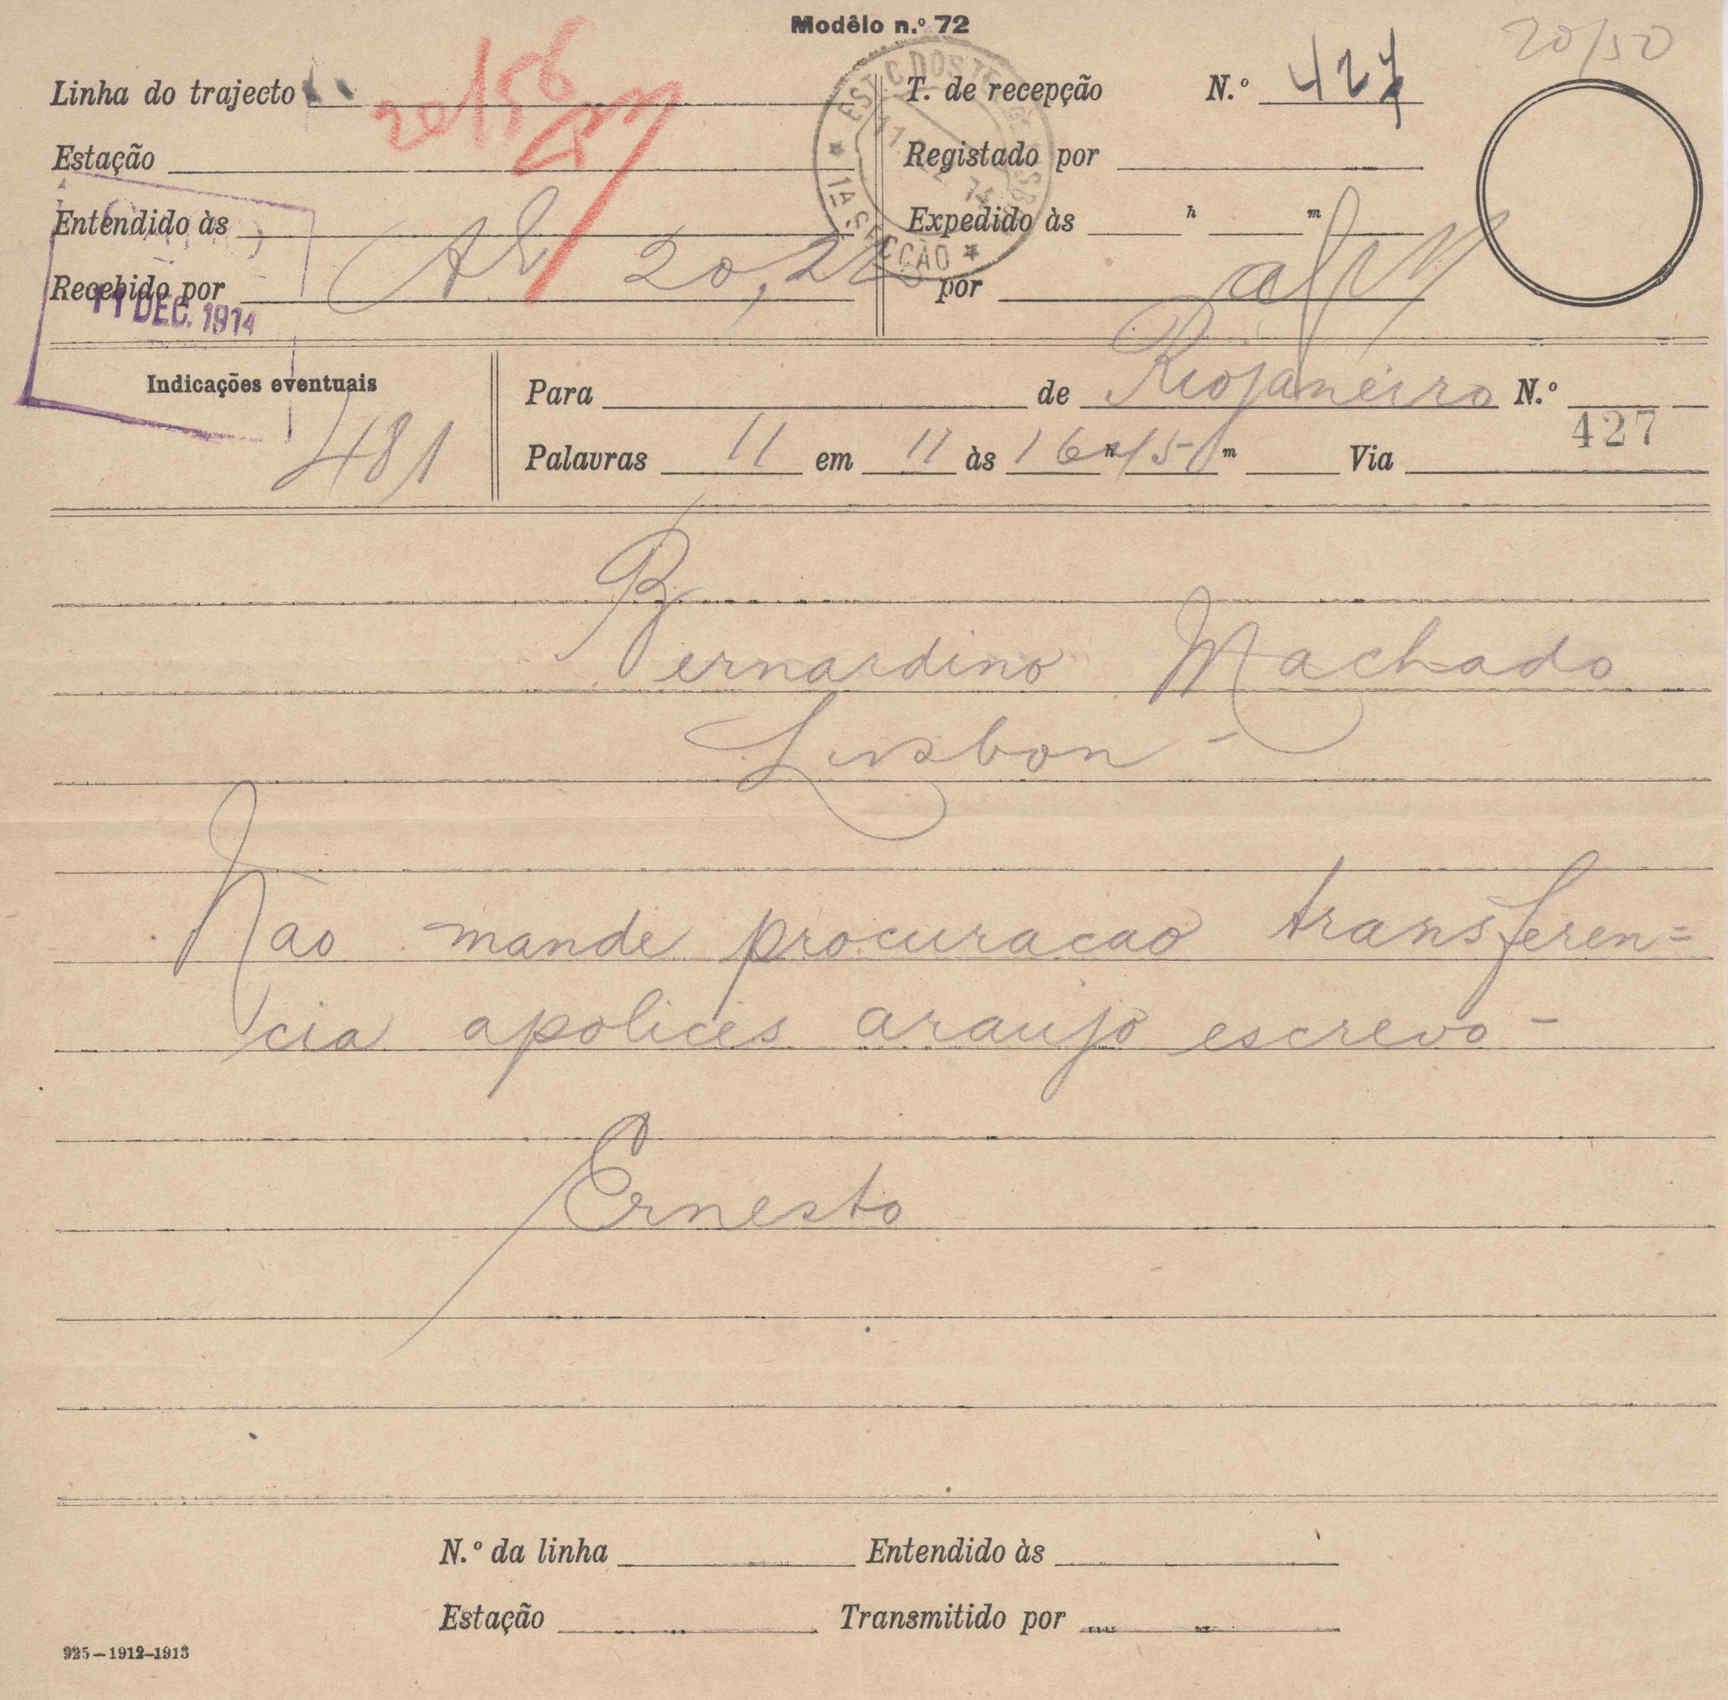 Modêlo n.º 72
20/50
Linha do trajecto
20/56
T. de recepção N.º 427
Estação
Registado por
Entendido às
Expedido às h m
Recebido por
20,22
por
11 DEC. 1914
1ª SECÇÃO
Indicações eventuais
481
Para de Riojaneiro N.º 427
Palavras 11 em 11 às 16 h 15 m Via
Bernardino Machado
Lisbon -
Nao mande procuracao transferen=
cia apolices araujo escrevo -
Ernesto
N.º da linha Entendido às
Estação Transmitido por
925-1912-1913